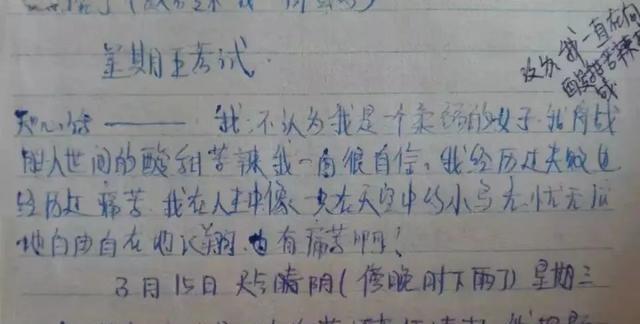 没ガ我一直在向
酸甜苦辣
战
星期五考试.
知心话——我:不认为我是一个柔弱的女子.我向战
胜人世间的酸甜苦辣我一向很自信。我经历过失败也
经历过痛苦.我在人生中像一只在天空中的小鸟无忧无虑
地自由自在地飞翔.也有痛苦啊!
3月15日 天气晴阴(傍晚时下雨了) 星期三